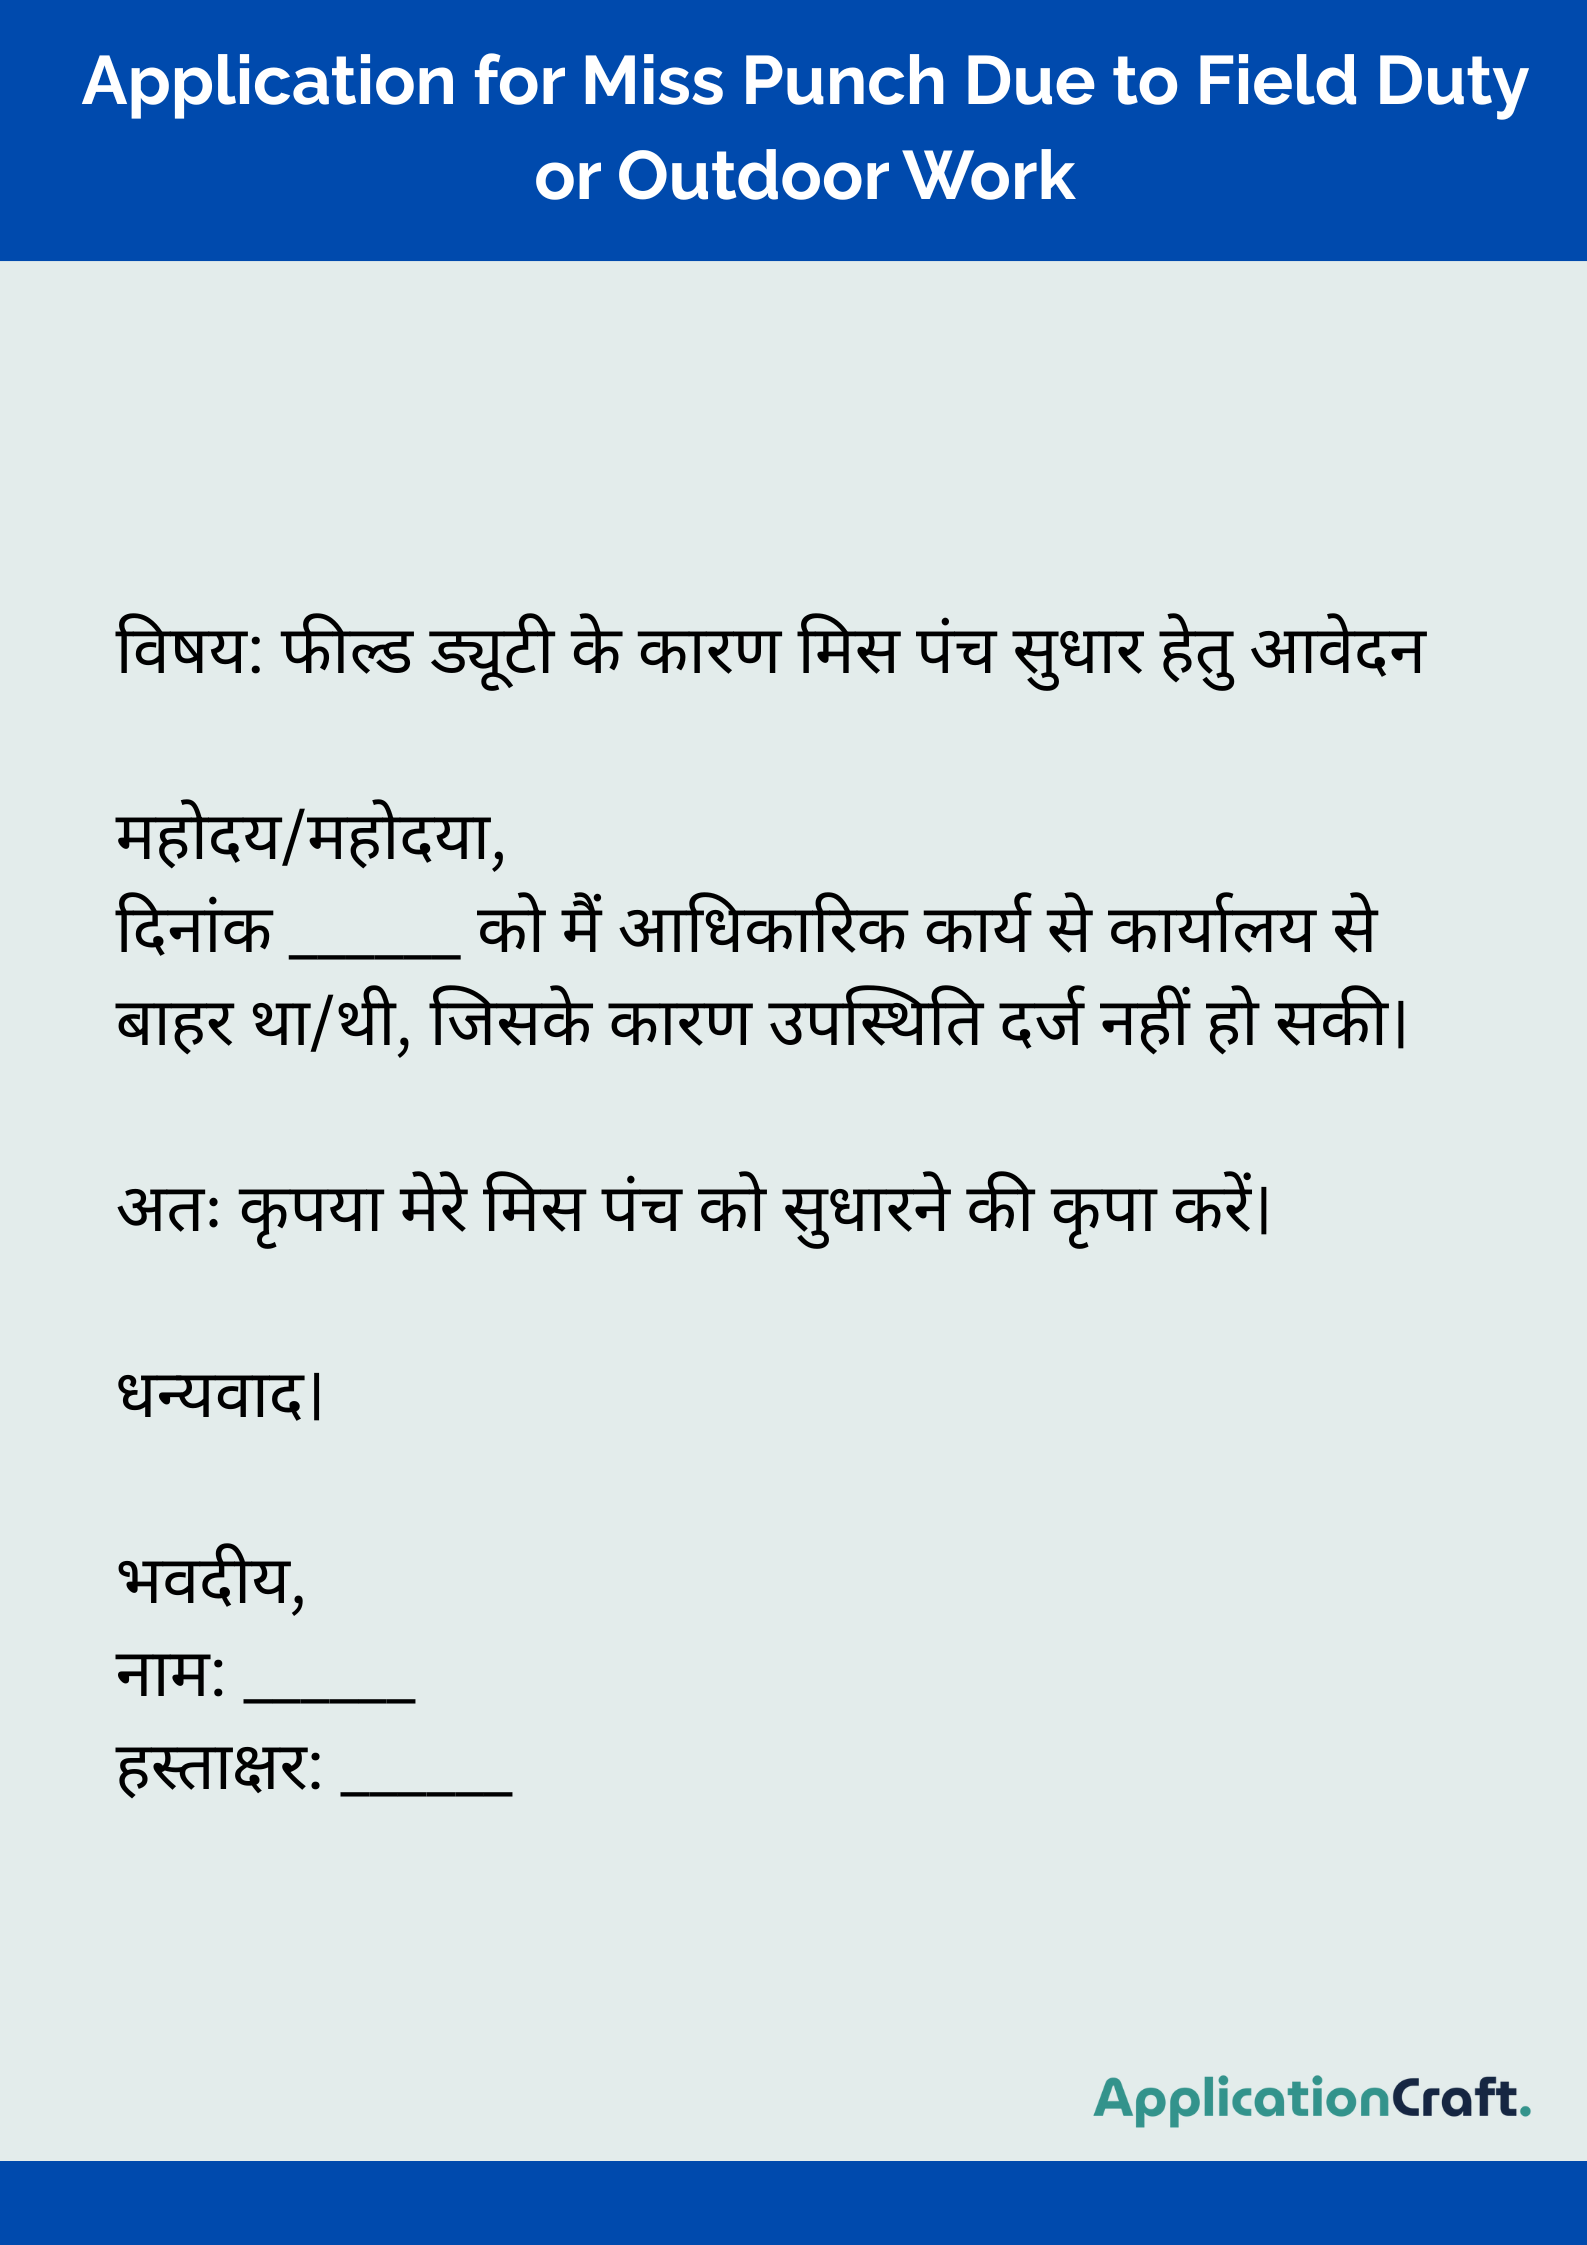 Application for Miss Punch Due to Field Duty
or Outdoor Work
विषय: फील्ड ड्यूटी के कारण मिस पंच सुधार हेतु आवेदन
महोदय/महोदया,
दिनांक ______ को मैं आधिकारिक कार्य से कार्यालय से
बाहर था/थी, जिसके कारण उपस्थिति दर्ज नहीं हो सकी।
अतः कृपया मेरे मिस पंच को सुधारने की कृपा करें।
धन्यवाद।
भवदीय,
नाम: ______
हस्ताक्षर: ______
ApplicationCraft.